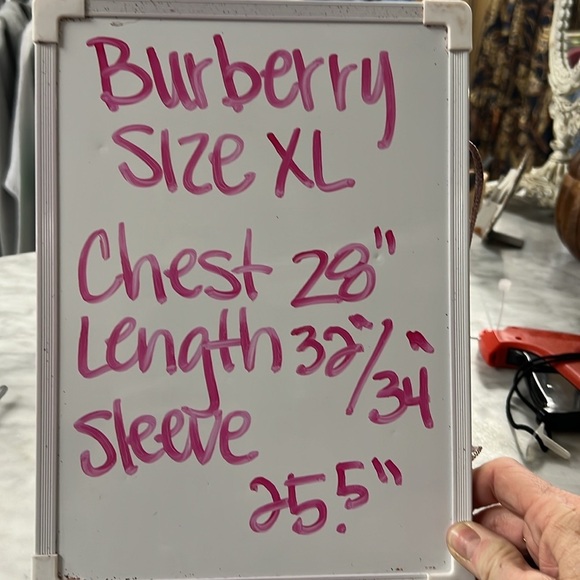 Burberry
Size XL
Chest 28"
Length 32"/34"
Sleeve
25.5"